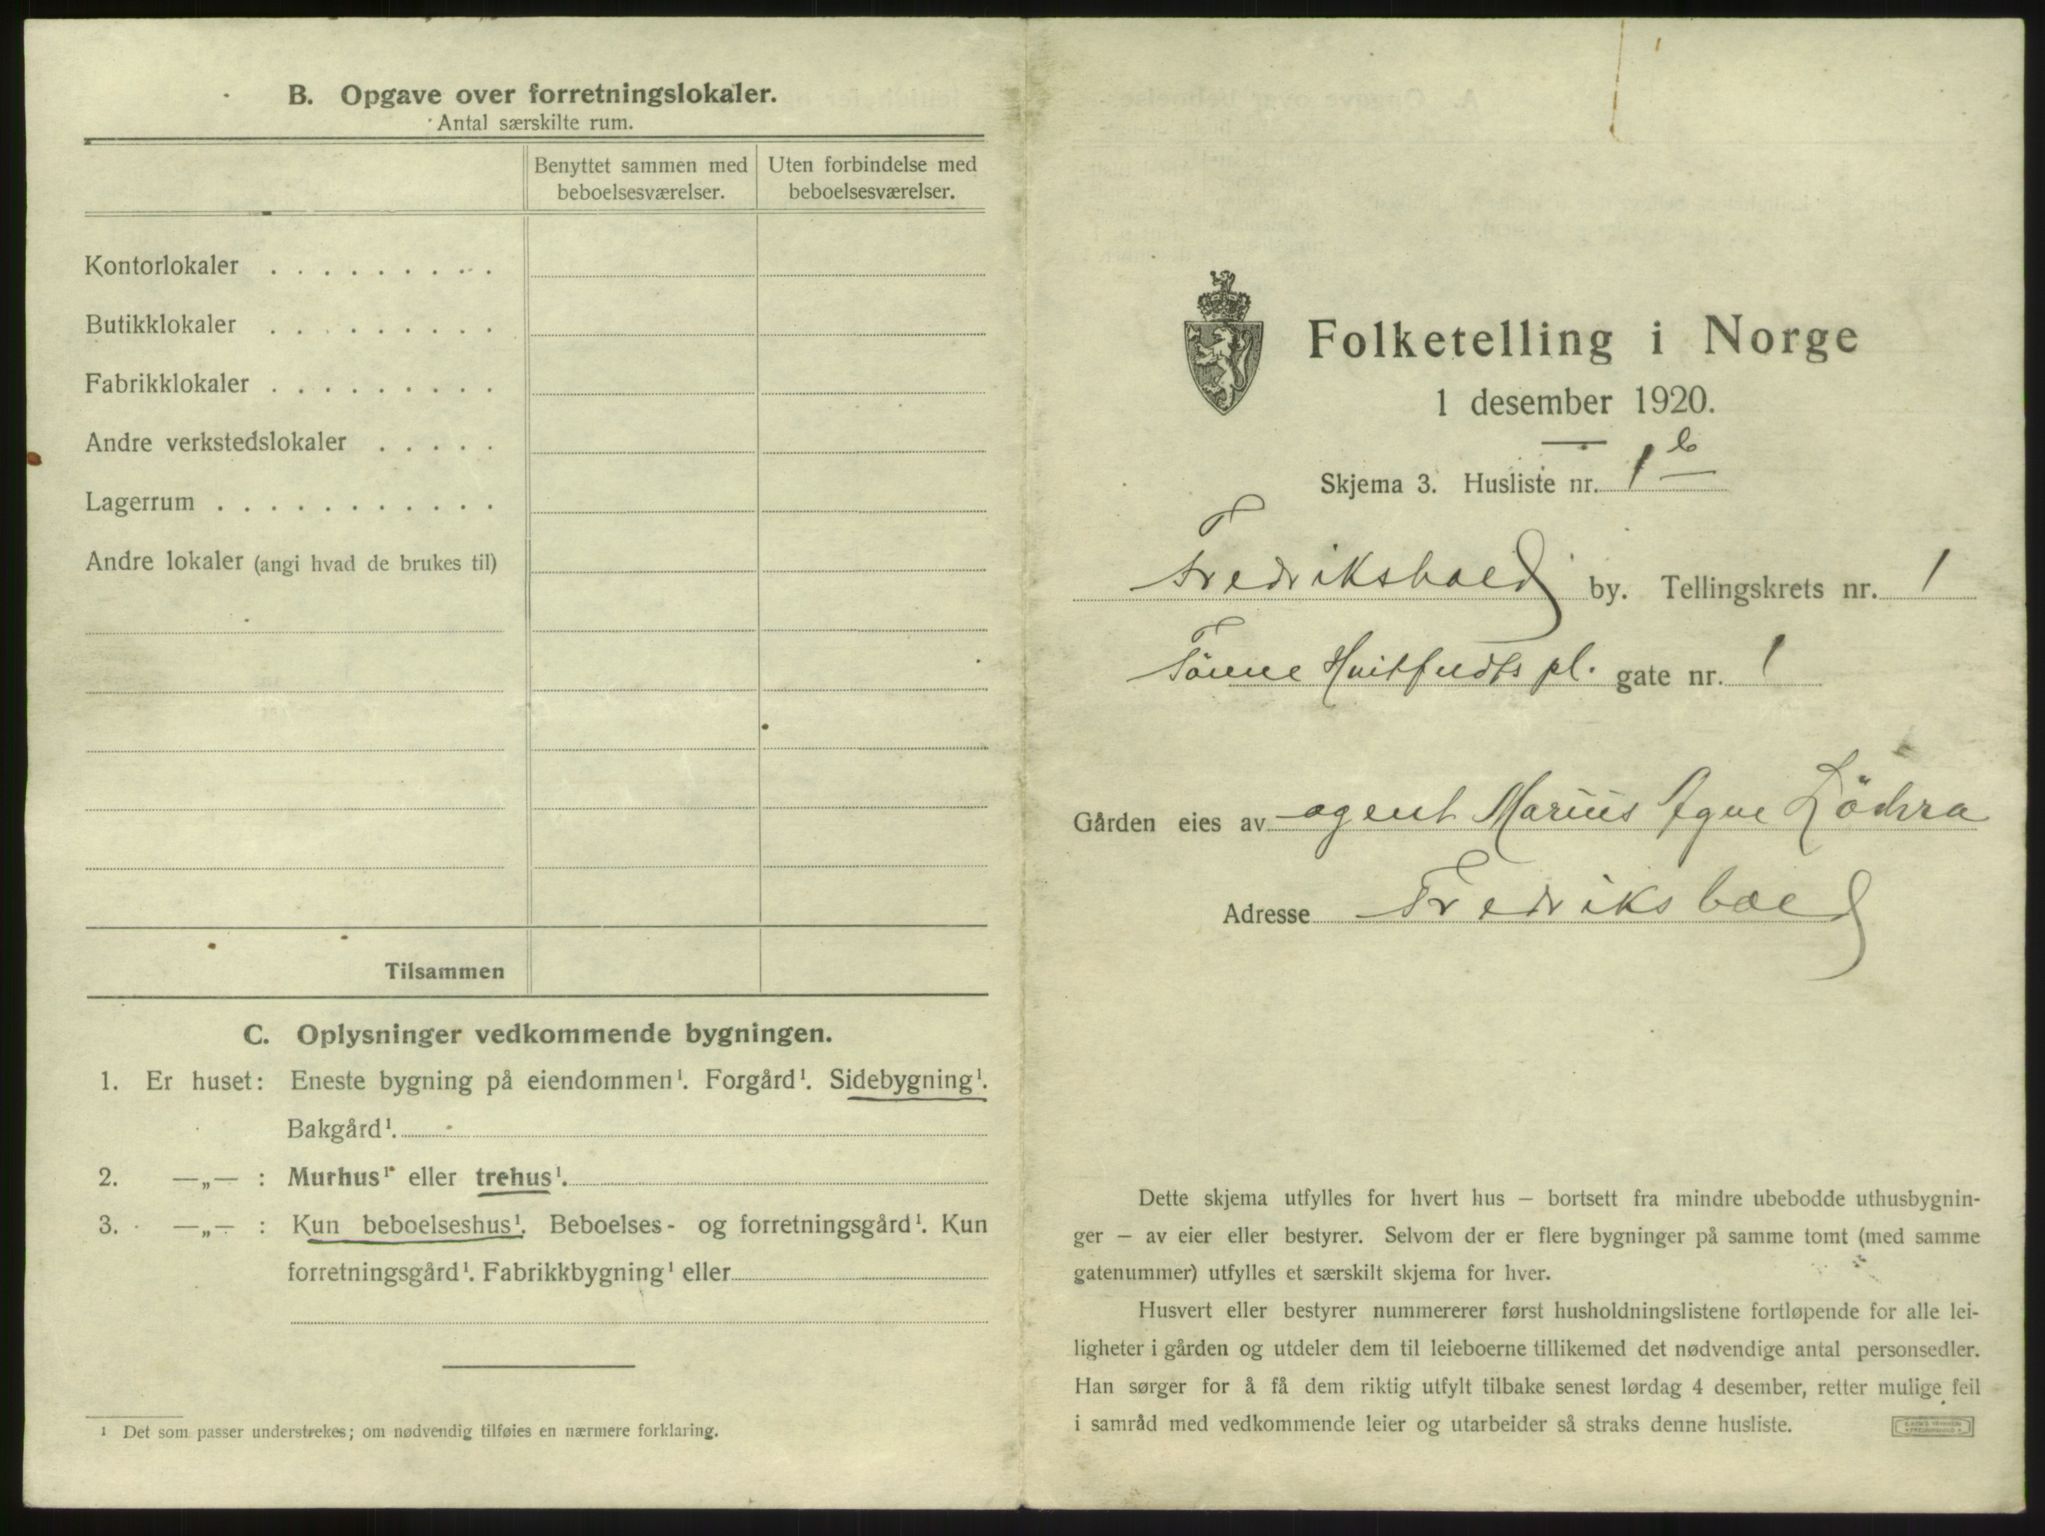 B. Opgave over forretningslokaler.
Antal særskilte rum.
Benyttet sammen med beboelsesværelser.
Uten forbindelse med beboelsesværelser.
Kontorlokaler . . . . . . . . .
Butikklokaler . . . . . . . . .
Fabrikklokaler . . . . . . . . .
Andre verkstedslokaler . . . . .
Lagerrum . . . . . . . . . . .
Andre lokaler (angi hvad de brukes til)
Tilsammen
C. Oplysninger vedkommende bygningen.
1. Er huset: Eneste bygning på eiendommen¹. Forgård¹. Sidebygning¹.
Bakgård¹.
2. —„— : Murhus¹ eller trehus¹.
3. —„— : Kun beboelseshus¹. Beboelses- og forretningsgård¹. Kun
forretningsgård¹. Fabrikkbygning¹ eller
¹ Det som passer understrekes; om nødvendig tilføies en nærmere forklaring.
Folketelling i Norge
1 desember 1920.
Skjema 3. Husliste nr. 1 b
Fredrikshald by. Tellingskrets nr. 1
Tönne Huitfeldts pl. gate nr. 1
Gården eies av agent Marius Agne Lödra
Adresse Fredrikshald
Dette skjema utfylles for hvert hus – bortsett fra mindre ubebodde uthusbygnin-
ger – av eier eller bestyrer. Selvom der er flere bygninger på samme tomt (med samme
gatenummer) utfylles et særskilt skjema for hver.
Husvert eller bestyrer nummererer først husholdningslistene fortløpende for alle lei-
ligheter i gården og utdeler dem til leieboerne tillikemed det nødvendige antal personsedler.
Han sørger for å få dem riktig utfylt tilbake senest lørdag 4 desember, retter mulige feil
i samråd med vedkommende leier og utarbeider så straks denne husliste.